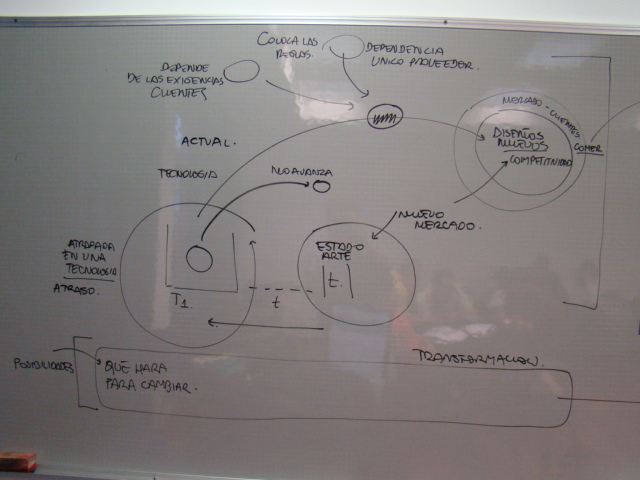 COLOCA LAS
REGLAS.
DEPENDENCIA
UNICO PROVEEDOR.
DEPENDE
DE LAS EXIGENCIAS
CLIENTES
MERCADO - CLIENTES
DISEÑOS
NUEVOS
COMPETITIVIDAD
COMER
ACTUAL.
TECNOLOGIA
NO AVANZA
NUEVO
MERCADO.
ATRAPADA
EN UNA
TECNOLOGIA
ATRASO.
T1.
t
ESTADO
ARTE
t.
TRANSFORMACION.
POSIBILIDADES
QUE HARA
PARA CAMBIAR.